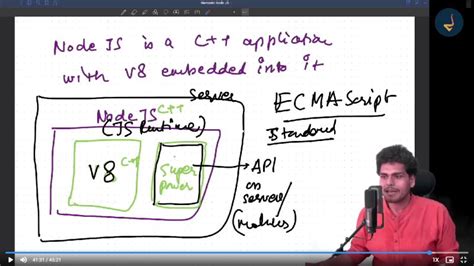 Node JS is a C++ application
with V8 embedded into it
Server
ECMAScript
Standard
Node JS C++
(JS Runtime)
V8 C++
Super
power
API
on
server/
(modules)
41:31
1X